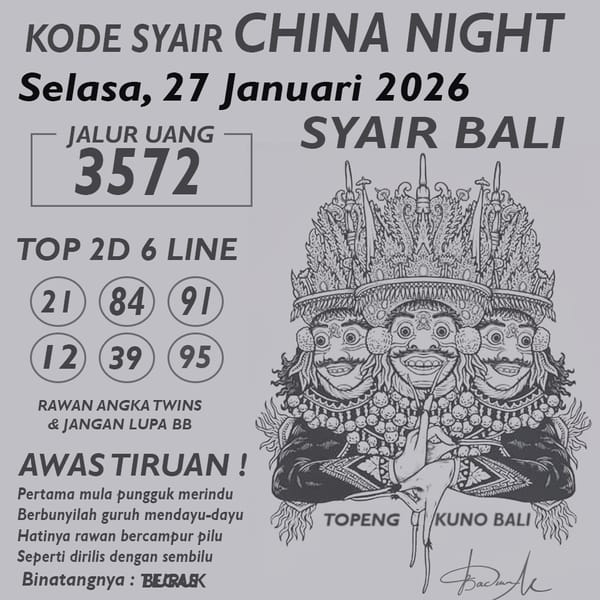 KODE SYAIR CHINA NIGHT
Selasa, 27 Januari 2026
JALUR UANG
3572
SYAIR BALI
TOP 2D 6 LINE
21 84 91
12 39 95
RAWAN ANGKA TWINS
& JANGAN LUPA BB
AWAS TIRUAN !
Pertama mula pungguk merindu
Berbunyilah guruh mendayu-dayu
Hatinya rawan bercampur pilu
Seperti dirilis dengan sembilu
Binatangnya :
TOPENG KUNO BALI